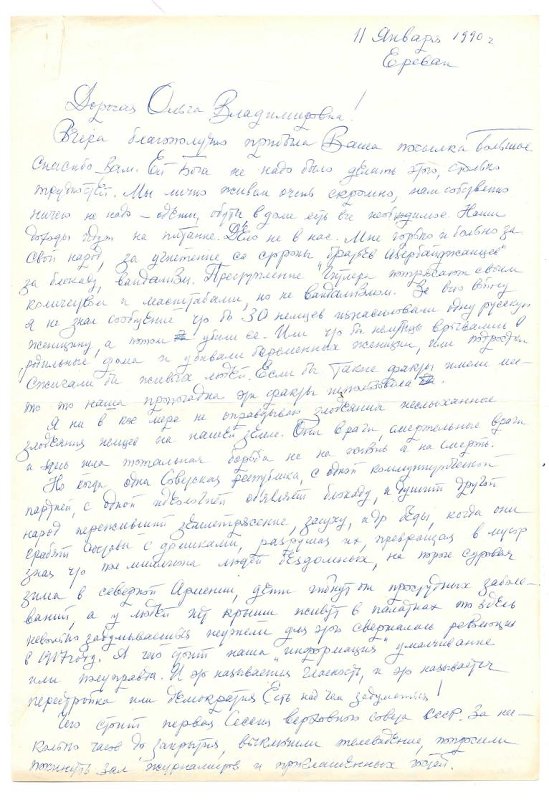 11 Января 1990 г
Ереван
Дорогая Ольга Владимировна!
Вчера благополучно прибыла Ваша посылка Большое
спасибо Вам. Ей Бога не надо было делить этого, столько
трудностей. Мы лично живем очень скромно, нам собственно
ничего не надо – одежи, обуви в доме есть все необходимое. Наши
доходы идут на питание. Дело не в нас. Мне горько и больно за
свой народ, за угнетение со стороны "братьев Азербайджанцев"
за блокаду, вандализм. Преступление Гитлера потрясают своим
количеством и масштабами, но не вандализмом. За всю войну
я не знал сообщение что бы 30 немцев изнасиловали одну русскую
женщину, а потом убили ее. Или что бы немцы врывались в
родильные дома и убивали беременных женщин, или
сжигали бы живых людей. Если бы такие факты имели мес-
то то наша пропаганда эти факты
Я ни в кое мере не оправдываю злодеяния неслыханное
злодеяния немцев на нашей земле. Они враги, смертельные враги
и здесь шла тотальная борьба не на жизнь а на смерть.
Но когда одна Советская республика, с одной коммунистической
партией, с одной идеологией объявляет блокаду, и душит другой
народ переживший землетрясение, засуху, и др беды, когда они
составы с дровами, разрушая их, превращая в мусор
зная что пол миллиона людей бездомных, на дворе суровая
зима в северной Армении, дети гибнут от простудных заболе-
ваний, а у людей нет крыши живут в палатках то здесь
невольно задумываешься неужели для этого свершалась революция
в 1917 году. А чего стоит наша "информация" умалчивание
или неправда. И это называется гласность, и это называется
перестройка или демократия Есть над чем задуматься!
Чего стоит первая Сессия верховного совета СССР. За не-
сколько часов до закрытия, выключили телевидение, попросили
покинуть зал журналистов и приглашенных людей.